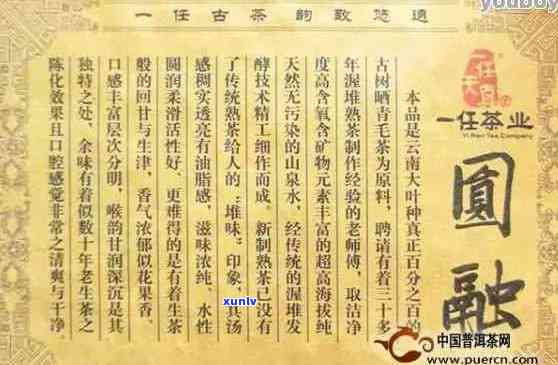 一任古茶韵致悠遠
本品是云南大叶种真正百分之百的
古树晒青毛茶为原料，聘请有着三十多
年渥堆熟茶制作经验的老师傅，取洁净
度高含氧含矿物元素丰富的超高海拔纯
天然无污染的山泉水，经传统的渥堆发
酵技术精工细作而成。新制熟茶已没有
了传统熟茶给人的“堆味”印象，其汤
感稠实透亮有油脂感，滋味浓纯，水性
圆润柔滑活性好，更难得的是有着生茶
般的回甘与生津，香气浓郁似花果香。
口感丰富层次分明，喉韵甘润深沉是其
独特之处，余味有着似数十年老生茶之
陈化效果且口腔感觉非常之清爽与干净。
一任茶业
Yi Ren Tea Company
圓融
xunlv
中国普洱茶网
www.puercn.com